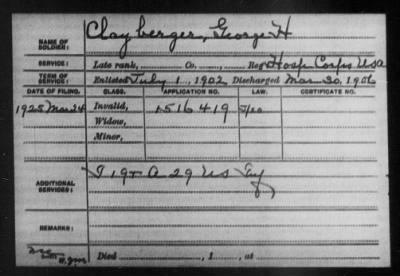 NAME OF SOLDIER: Clayberger, George H
SERVICE: Late rank, Co. , Reg Hosp Corps USA
TERM OF SERVICE: Enlisted July 1, 1902 Discharged Mar 30, 1906
DATE OF FILING. CLASS. APPLICATION NO. LAW. CERTIFICATE NO.
1925 Mar 24 Invalid, 1516419
Widow,
Minor,
ADDITIONAL SERVICES: A 29 US Inf
REMARKS:
Died , 1 , at